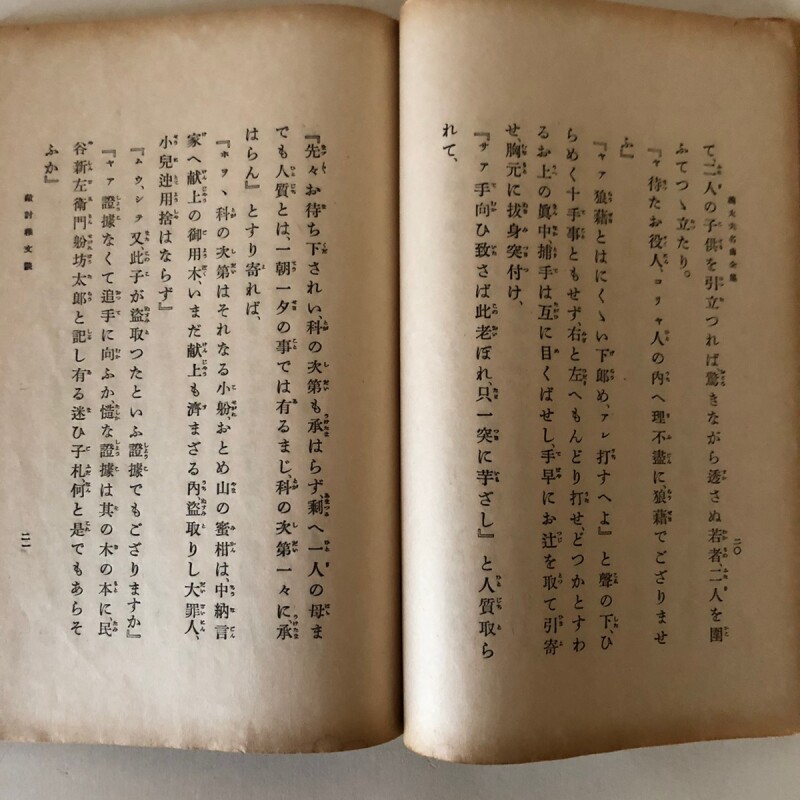 義太夫名曲全集
二〇
て、二人の子供を引立つれば驚きながら透さぬ若者、二人を圍
ふてつゝ立たり。
『ャ待たお役人、コリャ人の内へ理不盡に、狼藉でござりませ
ふ』
『ャァ狼藉とはにくゝい下郎め、アレ打すへよ』と聲の下、ひ
らめく十手事ともせず、右と左へもんどり打せ、どつかとすわ
るお上の眞中捕手は互に目くばせし、手早にお辻を取て引寄
せ、胸元に拔身突付け、
『サァ手向ひ致さば此老ぼれ、只一突に芋ざし』と人質取ら
れて、
『先々お待ち下されい、科の次第も承はらず、剩へ一人の母ま
でも人質とは、一朝一夕の事では有るまじ、科の次第一々に、承
はらん』とすり寄れば、
『ホヲヽ科の次第はそれなる小躮、おとめ山の蜜柑は、中納言
家へ献上の御用木、いまだ献上も濟まざる內、盜取りし大罪人、
小兒迚用捨はならず』
『ムウ、シテ又、此子が盜取つたといふ證據でもござりますか』
『ャァ證據なくて追手に向ふか、慥な證據は其の木の本に、民
谷新左衞門躮坊太郎と記し有る迷ひ子札、何と是でもあらそ
ふか』
敵討
二一